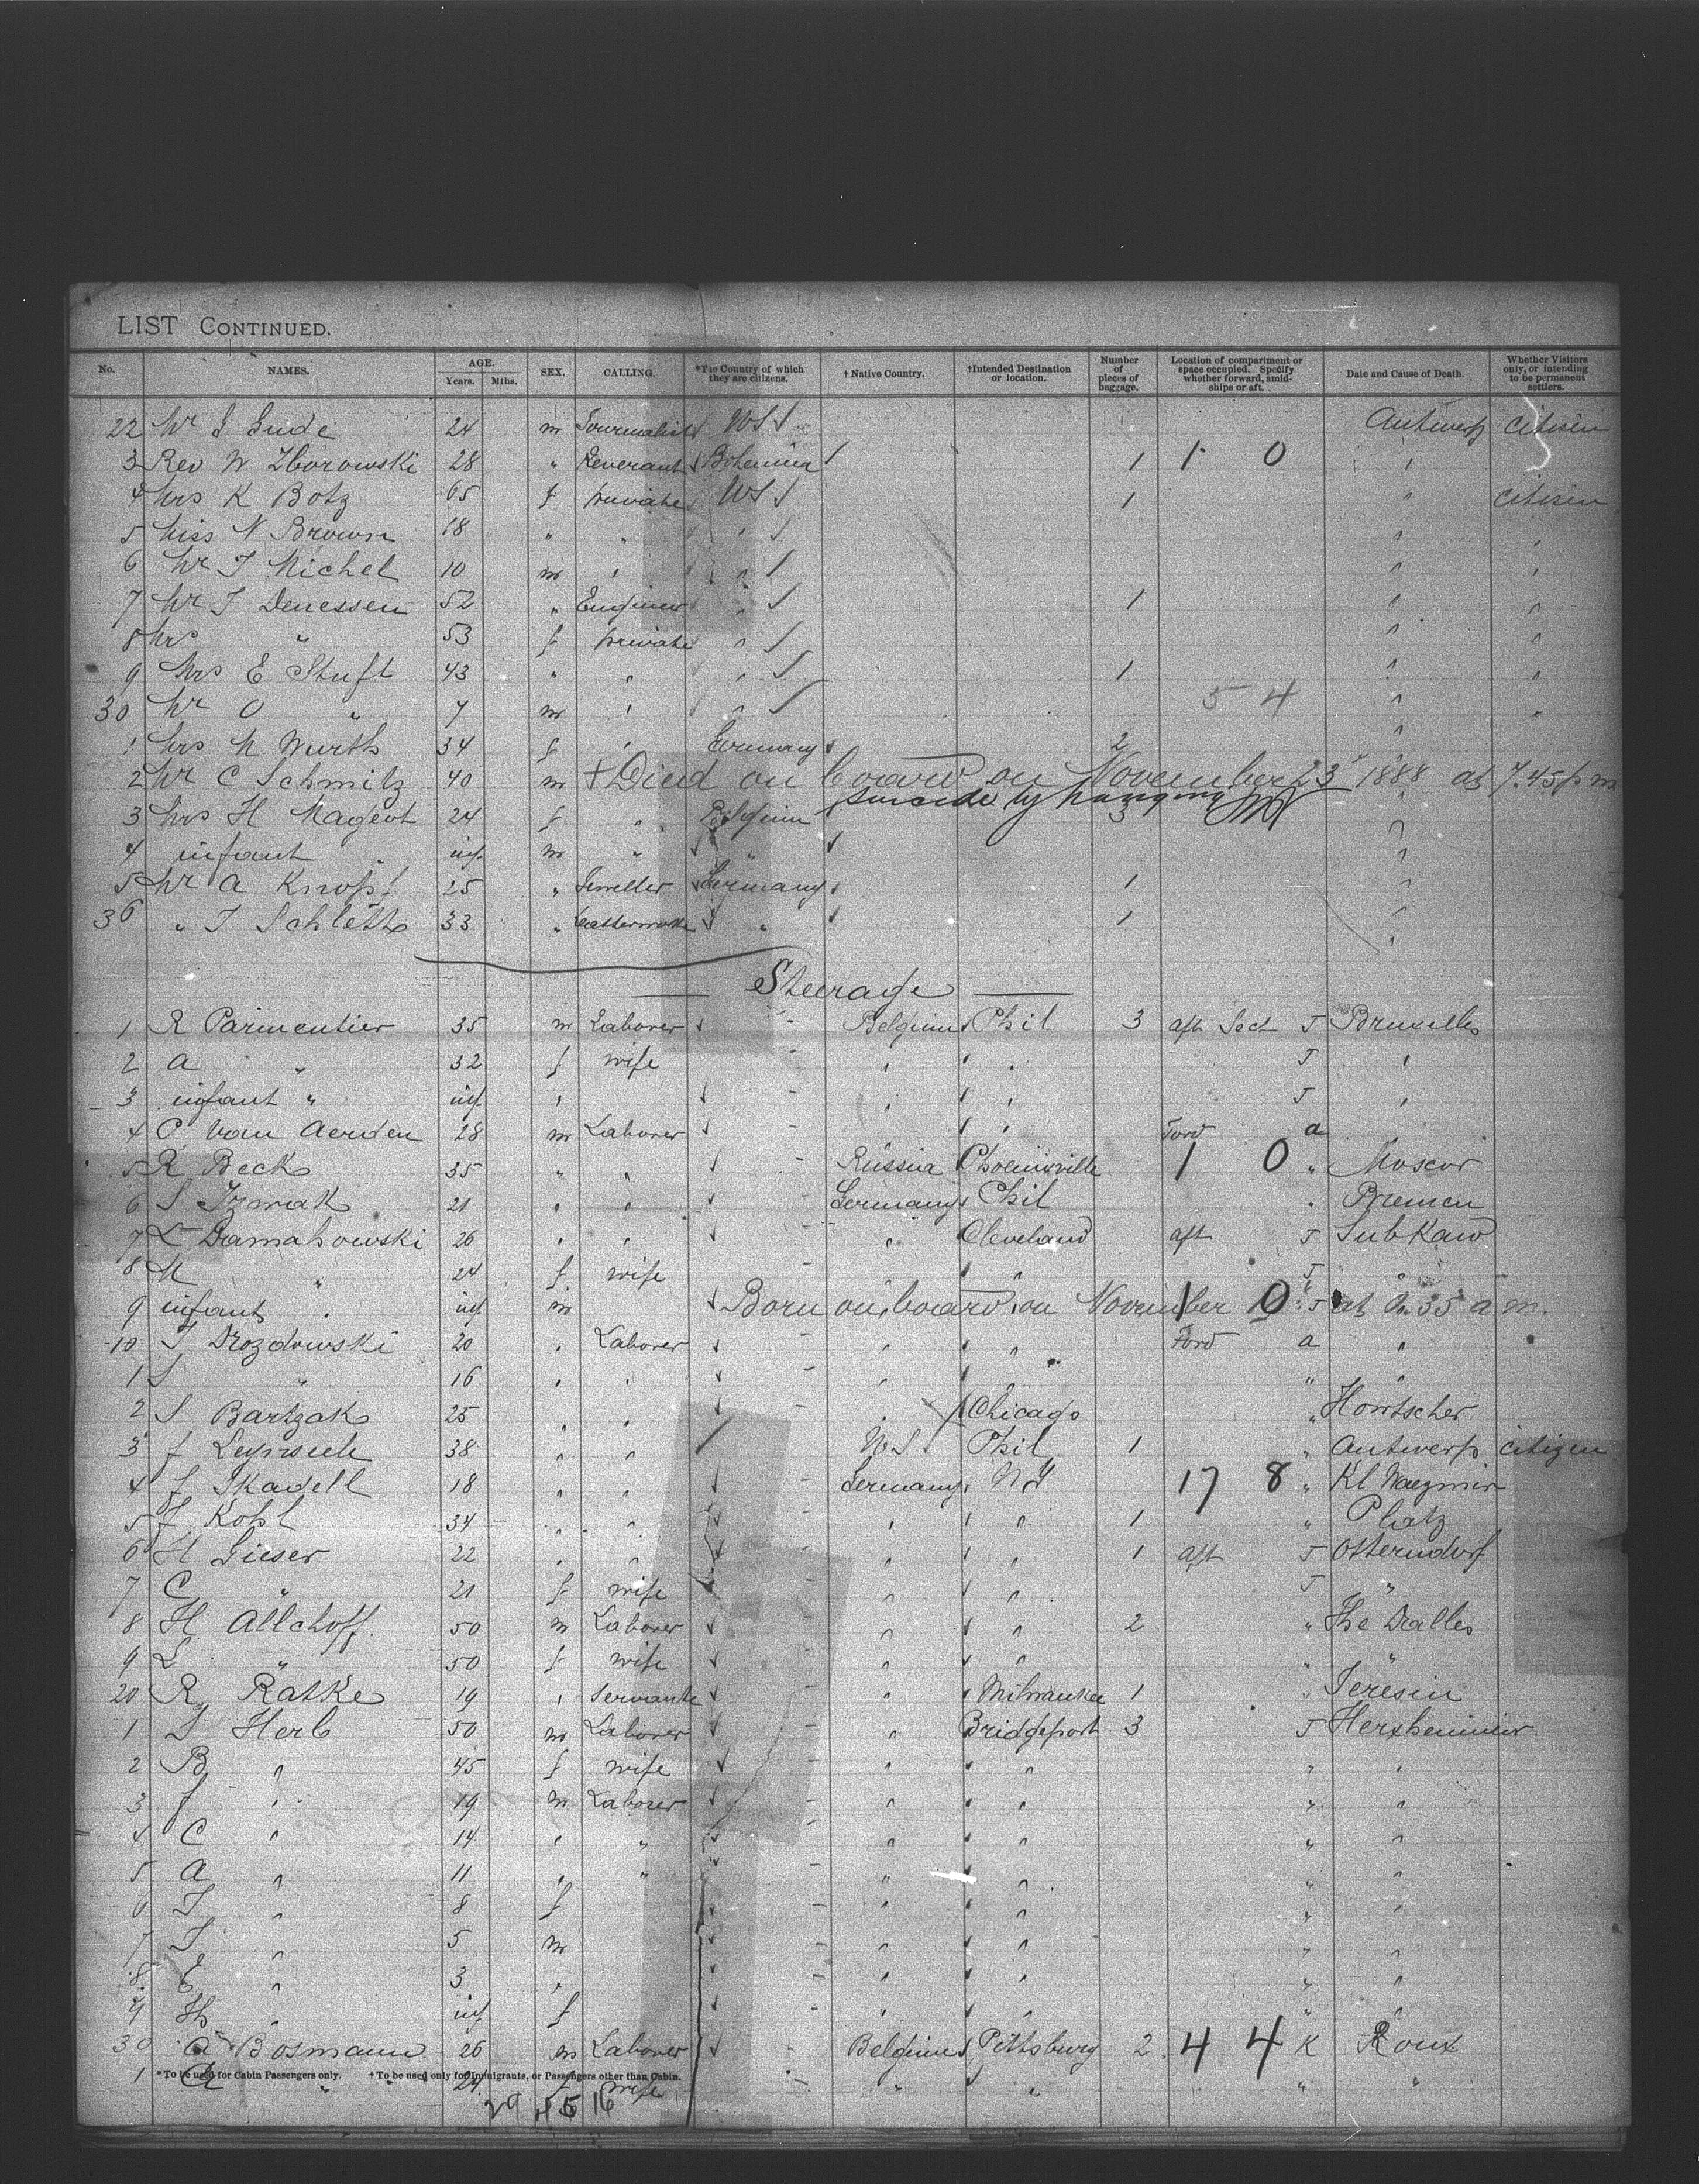 LIST CONTINUED.
No. NAMES. AGE. Years. Mths. SEX. CALLING. *The Country of which they are citizens. †Native Country. †Intended Destination or location. Number of pieces of baggage. Location of compartment or space occupied. Specify whether forward, amidships or aft. Date and Cause of Death. Whether Visitors only, or intending to be permanent settlers.
22 Mr Lude 24 m Journalist US Antwerp Citisen
3 Rev W Zborowski 28 " Reverant Bohemia 1 1 0 "
4 Mrs K Botz 65 f private US 1 " citisen
5 Miss N Brown 18 " " " " "
6 Mr J Michel 10 m " " " "
7 Mr J Denessen 52 " Engineer " 1 " "
8 Mrs " 53 f private " " "
9 Mrs E Stuft 43 " " " 1 " "
30 Mr O " 7 m " " 5 4 " "
1 Mrs M Wurth 34 f " Germany 2 "
2 Mr C Schmitz 40 m † Died on board on November 23 1888 at 7.45 p m
suicide by hanging
3 Mrs H Mageot 24 f " Belgium 3 "
4 infant inf. m " " "
5 Mr A Knopf 25 " Jeweller Germany 1 "
36 " J Schleth 33 " " 1 "
Steerage
1 R Parmentier 35 m Laborer Belgium Phil 3 aft Sect J Bruxelles
2 A " 32 f wife " " J "
3 infant " inf. " " " J "
4 C van Aerden 28 m Laborer " Ford a "
5 R Beck 35 " " Russia Phoenixville 1 0 " Moscow
6 S 21 " " Germany Phil " Bremen
7 L Damahowski 26 " " " Cleveland aft J Subkaw
8 M " 24 f wife " J "
9 infant " inf m Born on board on November 10 J at 35 a m.
10 J Drozdowski 20 " Laborer " " Ford a "
1 S " 16 " " " " " "
2 S Bartzak 25 " " " Chicago "
3 f 38 " " US Phil 1 " Antwerp citizen
4 f Skadell 18 " " Germany NY 17 8 " Kl
5 f Kohl 34 " " " " 1 " Platz
6 H Gieser 22 " " " " 1 aft J Otterndorf
7 C " 21 f wife " " J "
8 H Allchoff. 50 m Laborer " " 2 " The Dalles
9 L " 50 f wife " " " "
20 R Ratke 19 " Servante " Milwaukee 1 " Teresin
1 L Herb 50 m Laborer " Bridgeport 3 J
2 B " 45 f wife " " " "
3 f " 19 m Laborer " " " "
4 C " 14 " " " " " "
5 A " 11 " " " " " "
6 T " 8 f " " " "
7 J " 5 m " " " "
8 E " 3 " " " " "
9 Th " inf f " " " "
30 A Bosmann 26 m Laborer Belgium Pittsburg 2 4 4 K Roux
1 " f wife " " " "
*To be used for Cabin Passengers only. †To be used only for Immigrants, or Passengers other than Cabin.
16